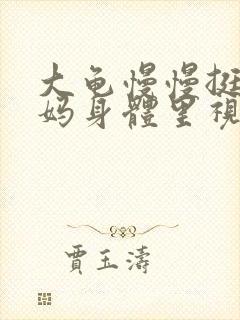 大龟慢慢挺
妈身體里視
賈玉濤